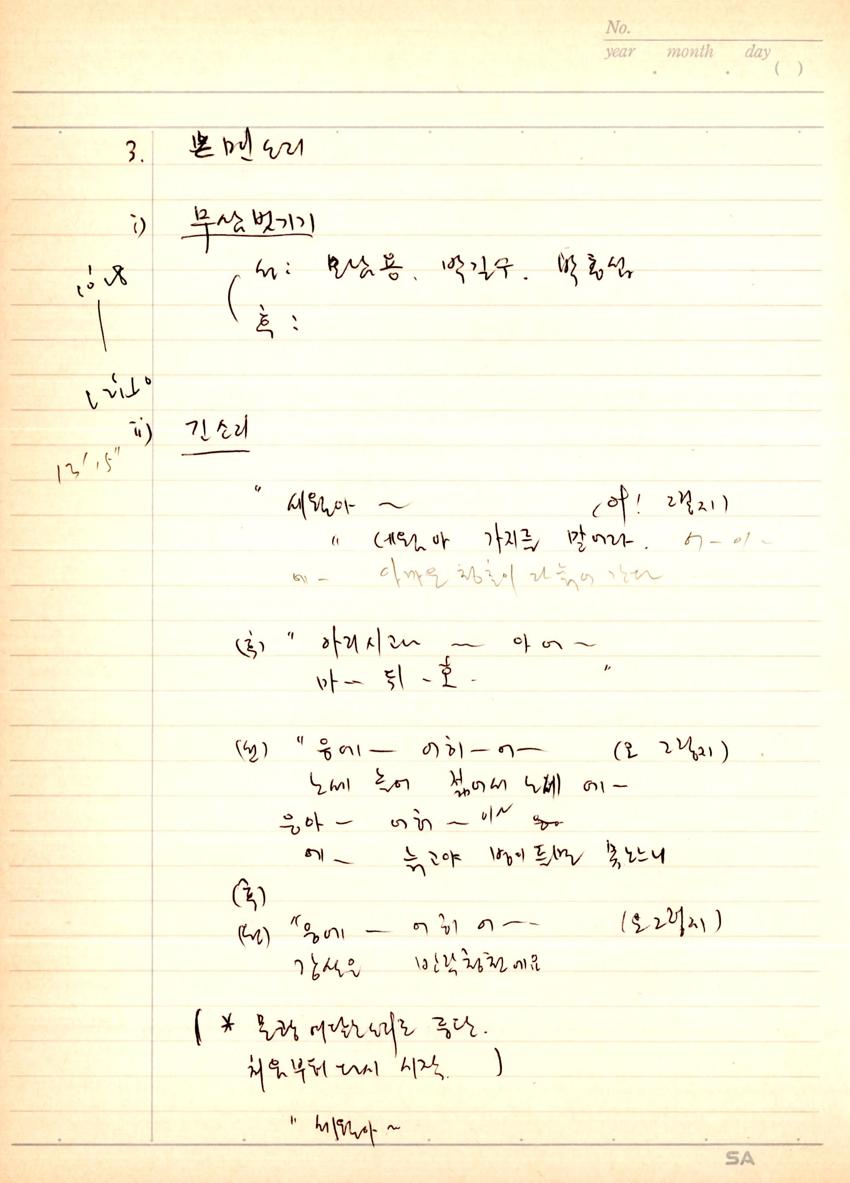 No.
year month day
( )
3. 본 면 소리
i) 무삼벗기기
선: 모남용. 박길수. 박홍섭
흑:
ii) 긴소리
13'15"
" 세월아 ~ (어! 그렇지)
" 세월아 가지를 말어라. 어-이-
에- 아까운 청춘이 다 늙어 간다
(흑) " 아리시고나 ~ 아 어~
마- 뒤 - 호 - "
(선) " 웅에 — 어히 — 어 — (오 그렇지)
노세 늙어 젊어서 노세 에-
응아 - 어허 ~
에 ~ 늙고야 병이 들면 못노느니
(흑)
(선) " 웅에 — 어히 어 — (오 그렇지)
강산은 만악청천에요
( * 문광 여닫는 소리로 중단.
처음부터 다시 시작. )
" 세월아 ~
SA